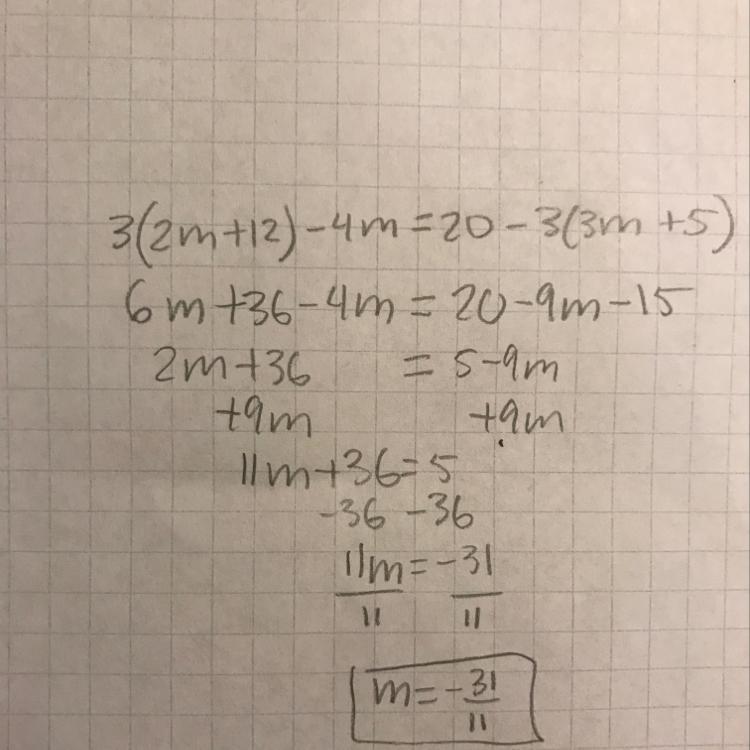 3(2m+12)-4m=20-3(3m+5)
6m+36-4m=20-9m-15
2m+36 = 5-9m
+9m +9m
11m+36=5
-36 -36
11m=-31
11 11
m=-31/11